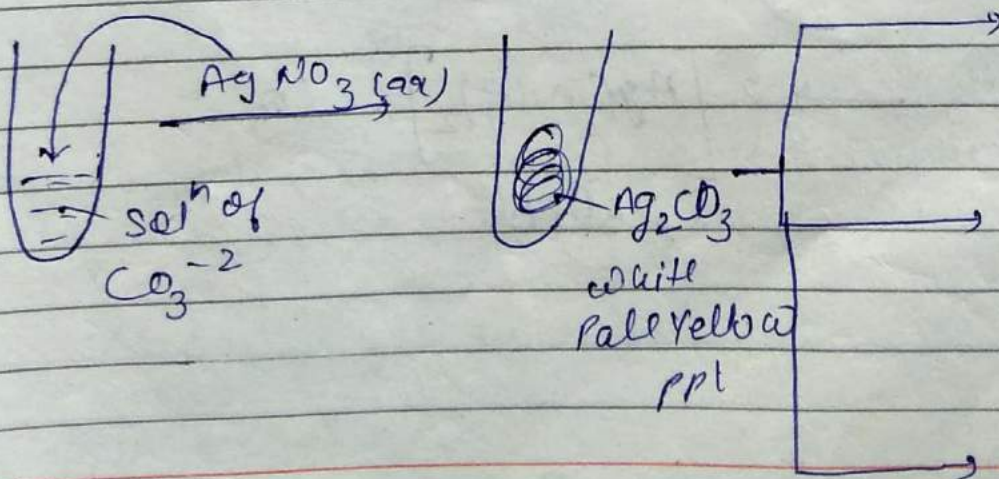 AgNO3 (aq)
Solⁿ of
CO3⁻²
Ag2CO3
white
Pale Yellow
ppt